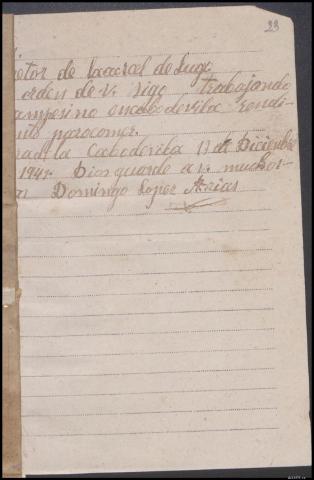 23
etor de la carcel de Lugo
orden de v. sigo trabajando
ampesino en cabodevila rendi-
para comer.
la Cabodevila 13 de Diciembre
1941. Dios guarde a v. muchos
Domingo Lopez Arias